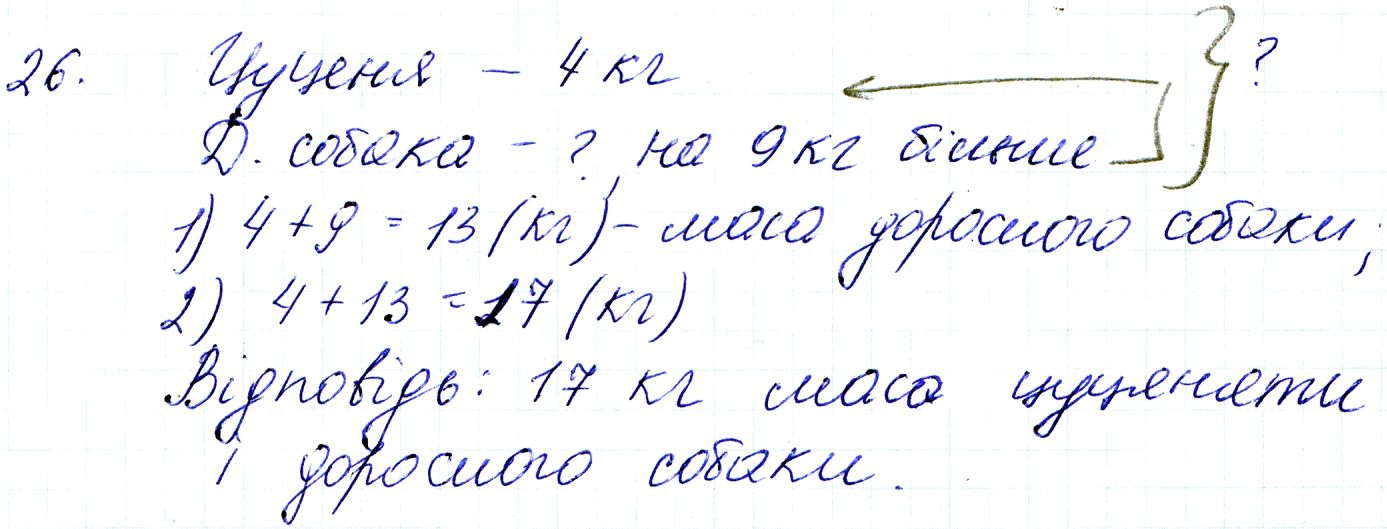 26. Цуценя – 4 кг ?
Д. собака – ?, на 9 кг більше
1) 4 + 9 = 13 (кг) – маса дорослого собаки;
2) 4 + 13 = 17 (кг)
Відповідь: 17 кг маса цуценяти
і дорослого собаки.